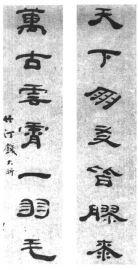 天下朋友皆膠漆
萬古雲霄一羽毛
竹汀錢大昕